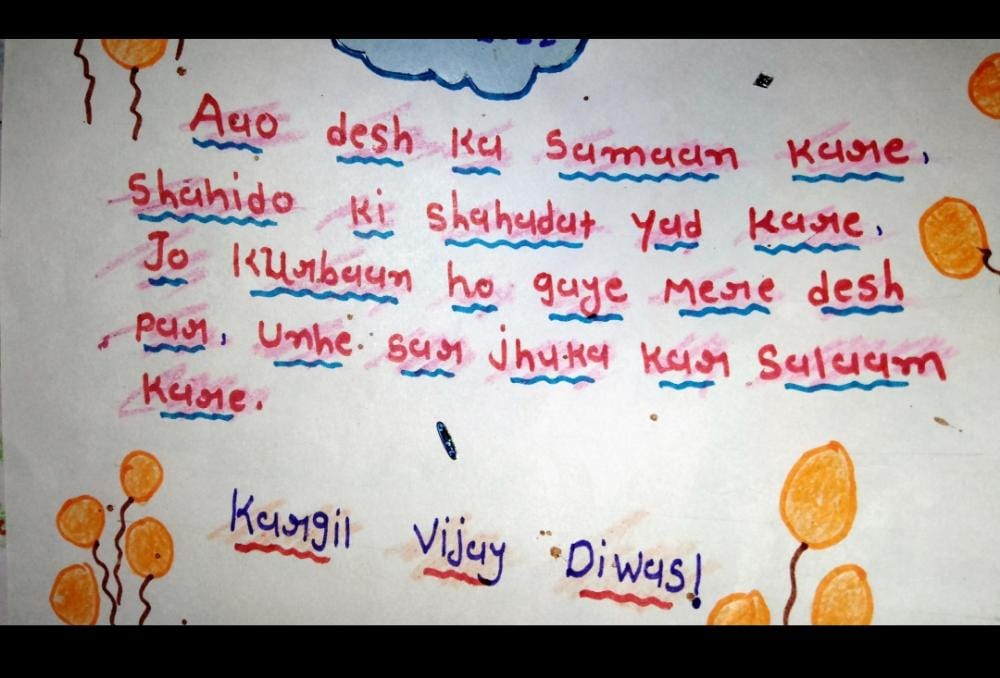 Aao desh ka Samaan kare,
Shahido ki shahadat yad kare,
Jo kurbaan ho gaye mere desh
par, Unhe sar jhuka kar Salaam
kare.
Kargil Vijay Diwas!